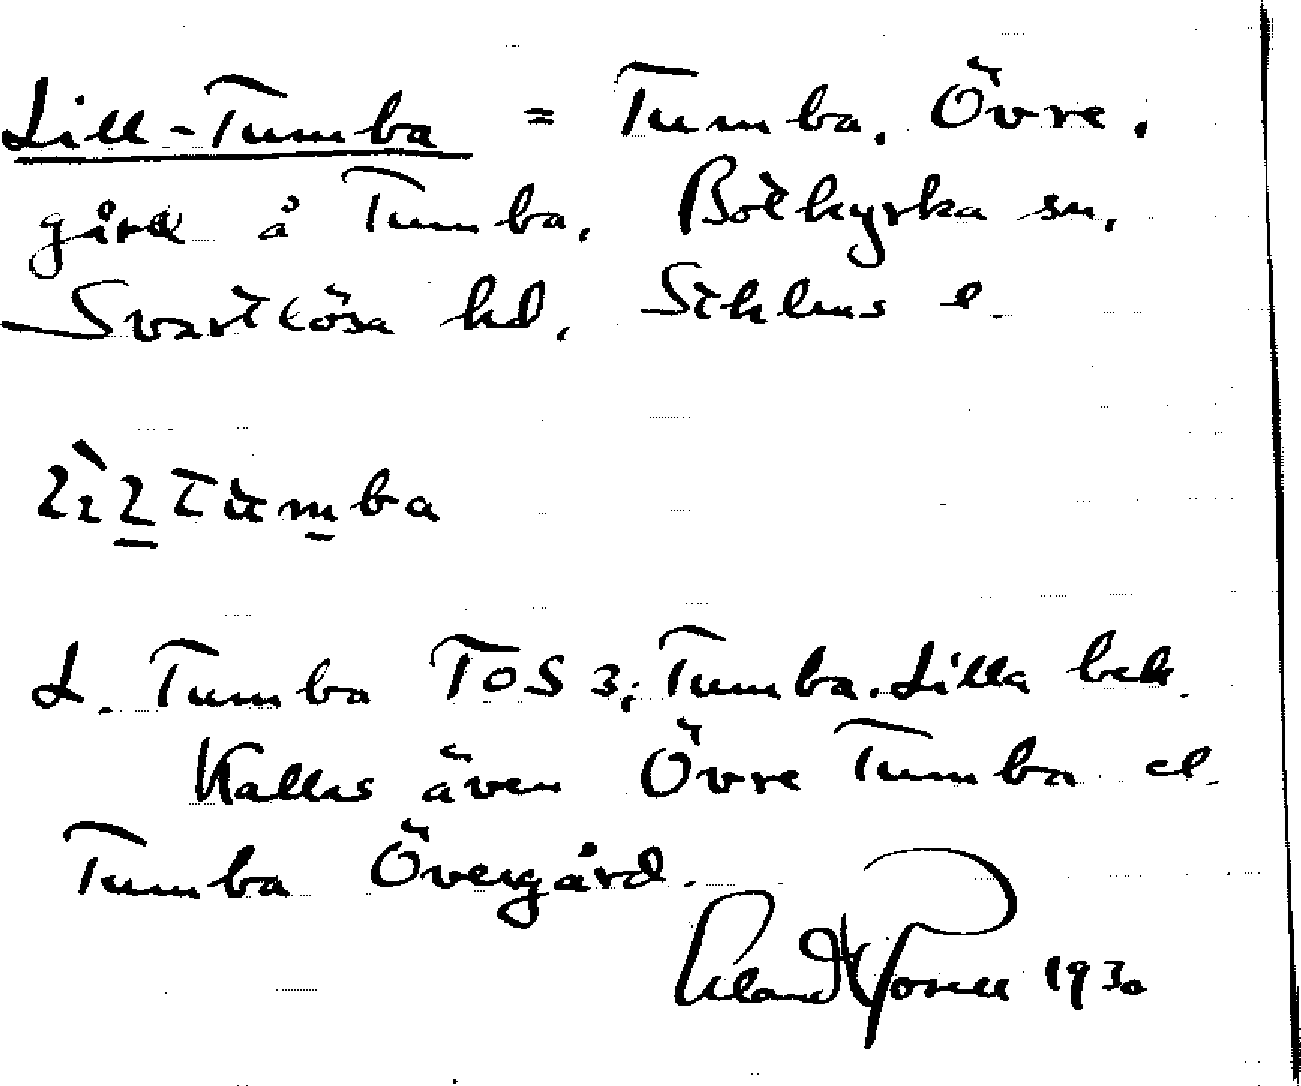 Lill-Tumba = Tumba, Övre,
gård å Tumba, Botkyrka sn,
Svartlösa hd, Sthlms l.
L. Tumba TOS 3; Tumba. Lilla bek.
Kallas även Övre Tumba el.
Tumba Övergård.
1930